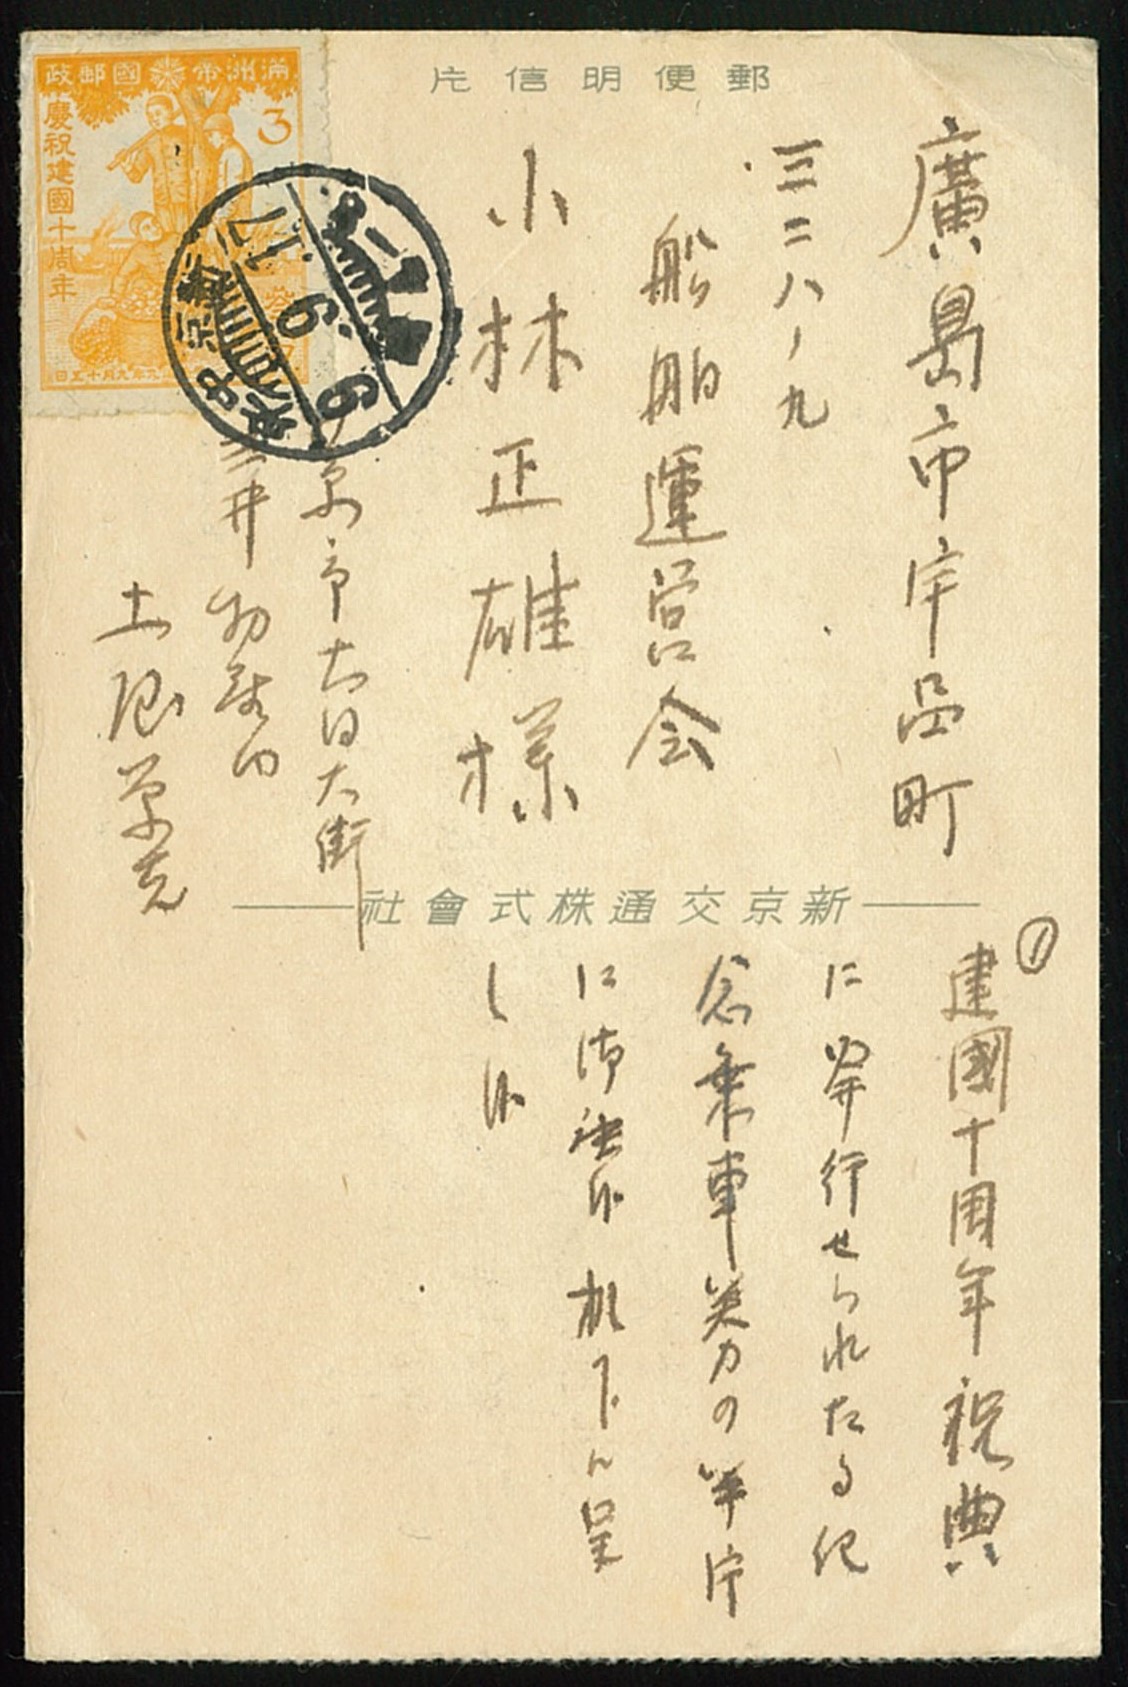 滿洲帝國郵政
慶祝建國十周年
3
郵便明信片
廣島市宇品町
三二八ノ九
船舶運営会
小林正雄様
京市大同大街
三井物産内
新京中央
17
9
9
新京交通株式會社
①
建國十周年祝典
に挙行せられたる紀
念乗車券の半片
に御
机下に呈
し